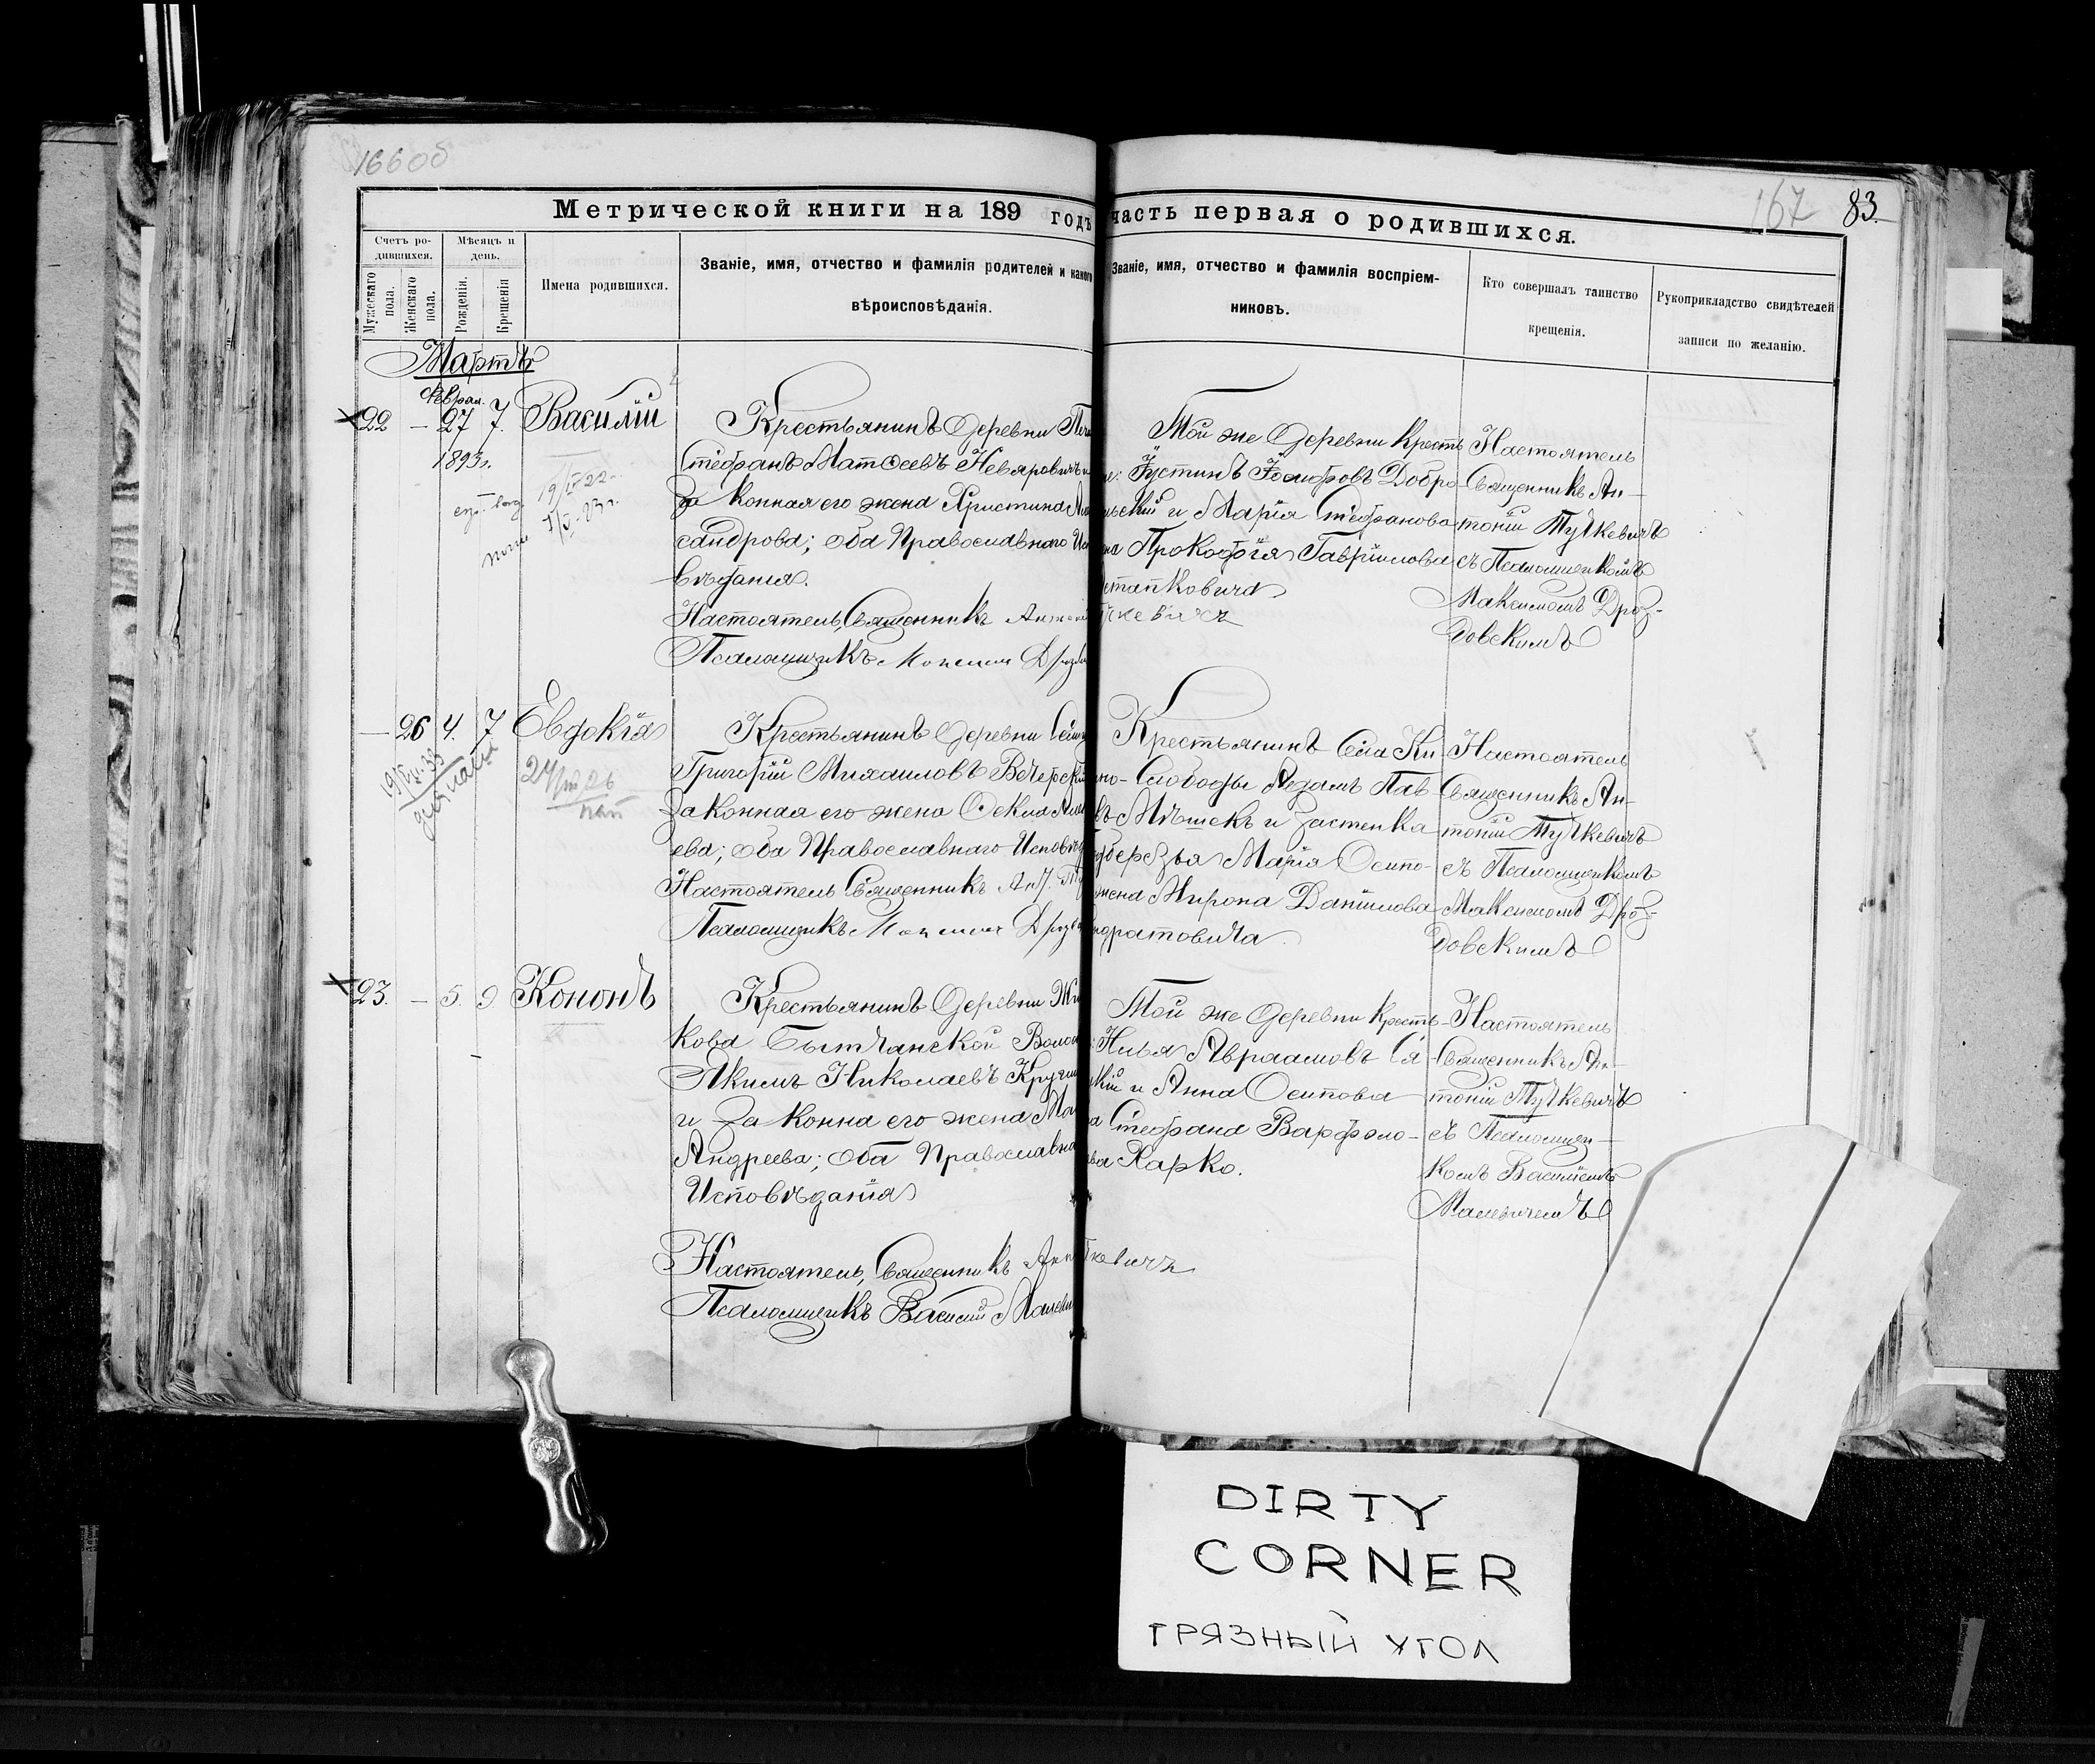 166об
167 83.
Метрической книги на 189 годъ
часть первая о родившихся.
Счетъ ро-
дившихся.
Мѣсяцъ и
день.
Мужескаго
пола.
Женскаго
пола.
Рожденія.
Крещенія
Имена родившихся.
Званіе, имя, отчество и фамилія родителей и какого
вѣроисповѣданія.
Званіе, имя, отчество и фамилія воспріем-
никовъ.
Кто совершалъ таинство
крещенія.
Рукоприкладство свидѣтелей
записи по желанію.
Мартъ
Феврал.
22 — 27 7. Василій
1893г.
Крестьянинъ Деревни
Стефанъ Матѳеевъ Невяровичъ и
за конная его жена Христина
сандрова; оба Православнаго Исп
вѣданія.
Настоятель, Священникъ
Псаломщикъ Максим
Той же Деревни Кресть
Іустинъ Іосифовъ Добро-
льскій и Марія Стефанова
Прокофія Гавріилова
Остапковича
Настоятель
Священникъ Ан-
тоній Тучкевичъ
съ Псаломщикомъ
Максимомъ Дроз-
довскимъ
— 26 4. 7 Евдокія
Крестьянинъ Деревни
Григорій Михаиловъ Вечерскій
законная его жена Ѳекла
ева; оба Православнаго Исповѣд
Настоятель Священникъ Ант.
Псаломщикъ Максим
Крестьянинъ Села Ки
но-Слободы Адамъ Пав
въ Мѣшекъ и Застенка
березья Марія Осипо-
жена Мирона Даніилова
ндратовича
Настоятель
Священникъ Ан-
тоній Тучкевичъ
съ Псаломщикомъ
Максимомъ Дроз-
довскимъ
23. — 5. 9 Кононъ
Крестьянинъ Деревни Жи
кова Бытчанской Волос
Якимъ Николаевъ
и За конна его жена
Андреева; оба Православна
Исповѣданія
Настоятель, Священникъ
Псаломщикъ Василій Малеви
Той же Деревни Кресть-
Илья Авраамовъ Ся
кій и Анна Осипова
Стефана Варфоло-
ва Харко.
Настоятель
Священникъ Ан-
тоній Тучкевичъ
съ Псаломщи-
комъ Василіемъ
Малевичемъ
DIRTY
CORNER
ГРЯЗНЫЙ УГОЛ